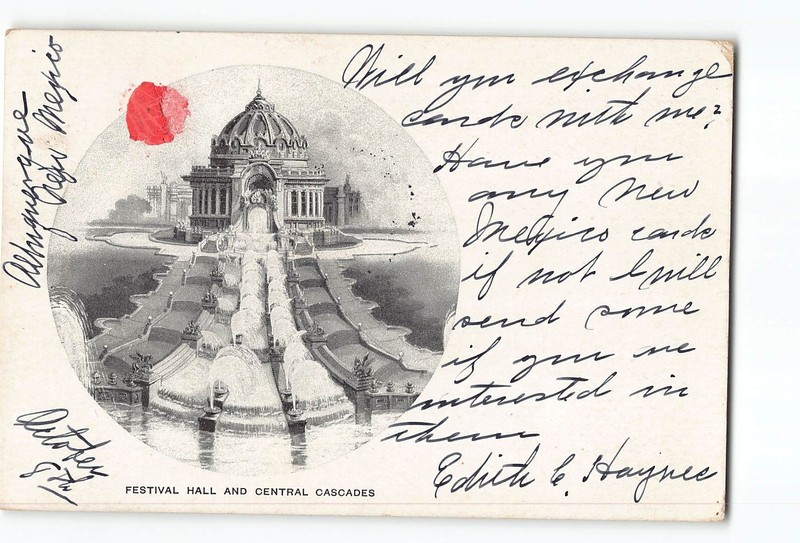 Will you exchange
cards with me?
Have you
any New
Mexico cards
if not I will
send some
if you are
interested in
them
Edith C. Haynes
Albuquerque
New Mexico
October
FESTIVAL HALL AND CENTRAL CASCADES